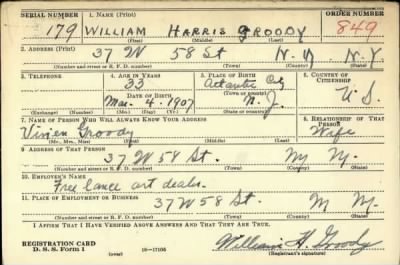 SERIAL NUMBER 1. NAME (Print) ORDER NUMBER
179 WILLIAM HARRIS GROODY 849
(First) (Middle) (Last)
2. ADDRESS (Print)
37 W 58 St N. Y. N. Y.
(Number and street or R. F. D. number) (Town) (County) (State)
3. TELEPHONE 4. AGE IN YEARS 5. PLACE OF BIRTH 6. COUNTRY OF CITIZENSHIP
33 Atlantic City
DATE OF BIRTH (Town or county)
Mar. 4. 1907 N. J. U S.
(Exchange) (Number) (Mo.) (Day) (Yr.) (State or country)
7. NAME OF PERSON WHO WILL ALWAYS KNOW YOUR ADDRESS 8. RELATIONSHIP OF THAT PERSON
Vivien Groody Wife
(Mr., Mrs., Miss) (First) (Middle) (Last)
9. ADDRESS OF THAT PERSON
37 W 58 St. N Y.
(Number and street or R. F. D. number) (Town) (County) (State)
10. EMPLOYER'S NAME
Free lance art dealer.
11. PLACE OF EMPLOYMENT OR BUSINESS
37 W 58 St. N Y.
(Number and street or R. F. D. number) (Town) (County) (State)
I AFFIRM THAT I HAVE VERIFIED ABOVE ANSWERS AND THAT THEY ARE TRUE.
REGISTRATION CARD
D. S. S. Form 1 (over) 16—17105 William H. Groody
(Registrant's signature)